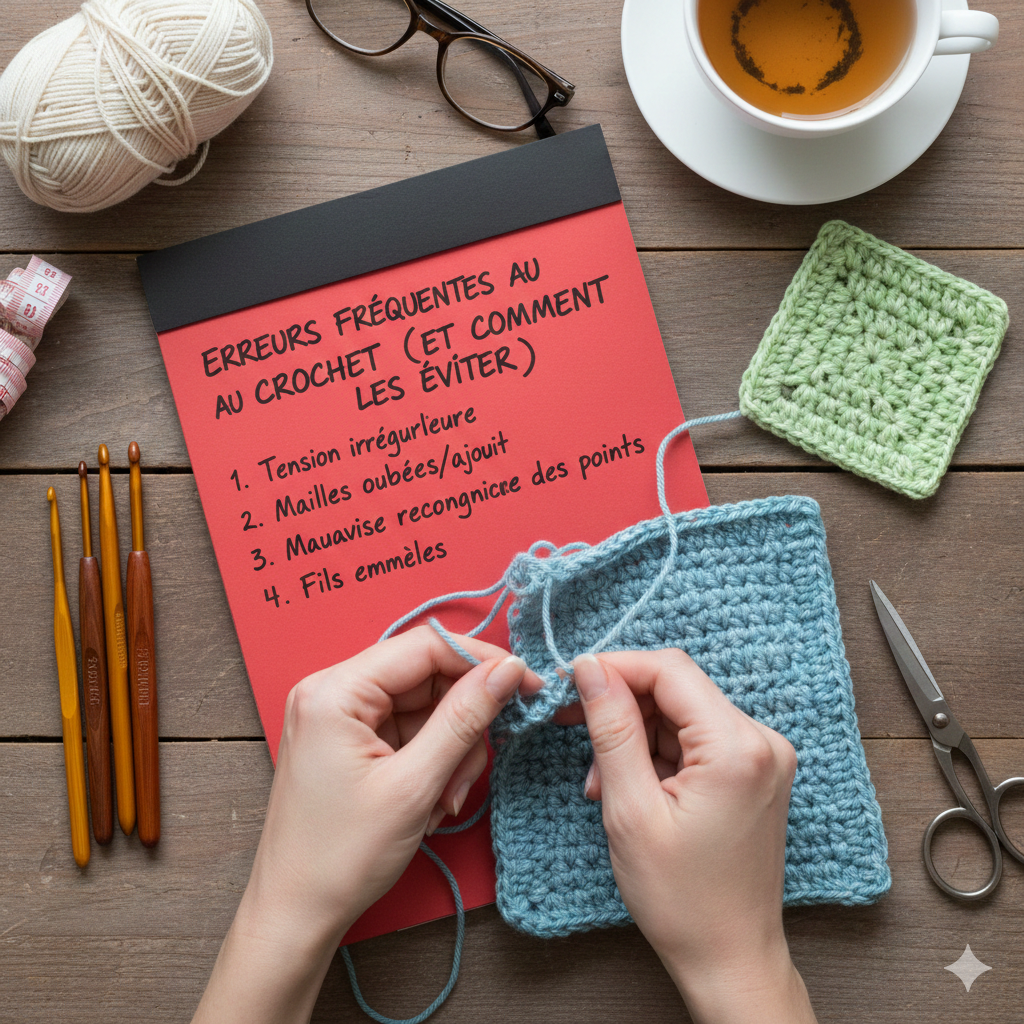 ERREURS FRÉQUENTES AU
AU CROCHET (ET COMMENT
LES ÉVITER)
1. Tension irrégurlieure
2. Mailles oubées/ajouit
3. Mauavise recongnicœ des points
4. Fils emmèles